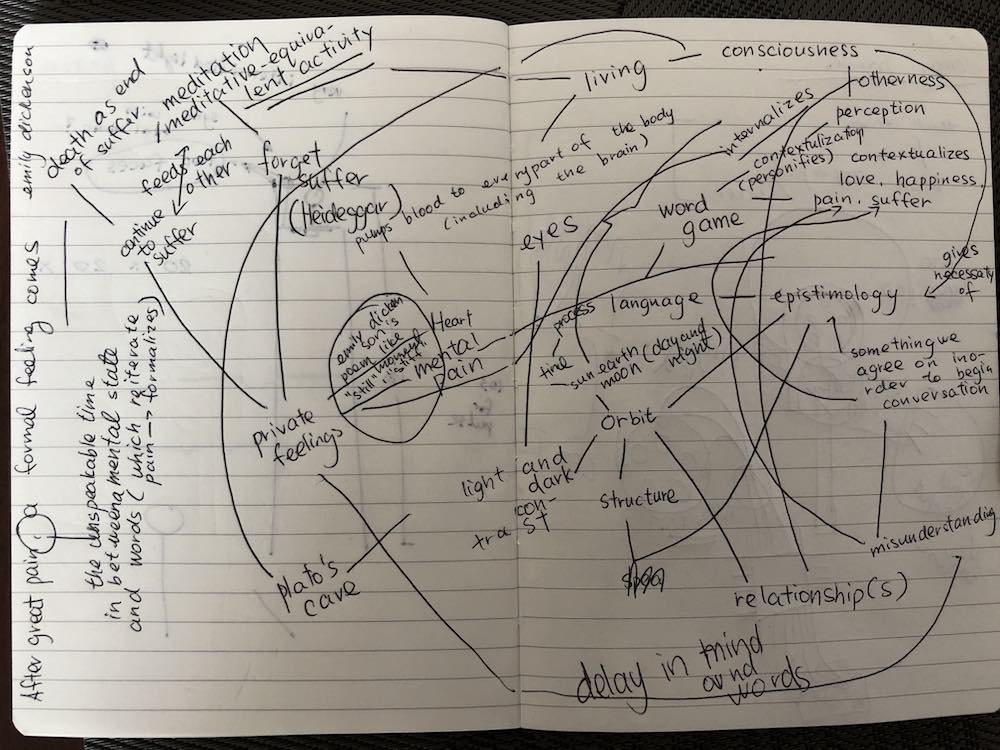 emily dickenson
After great pain, a formal feeling comes
death as end
of suffer
meditation
/meditative-equiva-
lent activity
feeds each
other
continue
to
suffer
forget
suffer
(Heideggar)
pumps blood to every part of the body
(including the brain)
the unspeakable time
in between a mental state
and words (which reiterate
pain → formalizes)
emily dicken
son's
poem like
"still" moment
Heart
mental
pain
private
feelings
plato's
cave
living
consciousness
otherness
perception
internalizes
contextulization
(personifies)
contextualizes
love, happiness,
pain, suffer
eyes
word
game
gives
necessaty
of
process
language
epistimology
time
sun earth
moon (day and
night)
something we
agree on ino-
rder to begin
conversation
Orbit
light and
dark
con-
tra st
structure
misunderstanding
relationship(s)
delay in mind
and
words